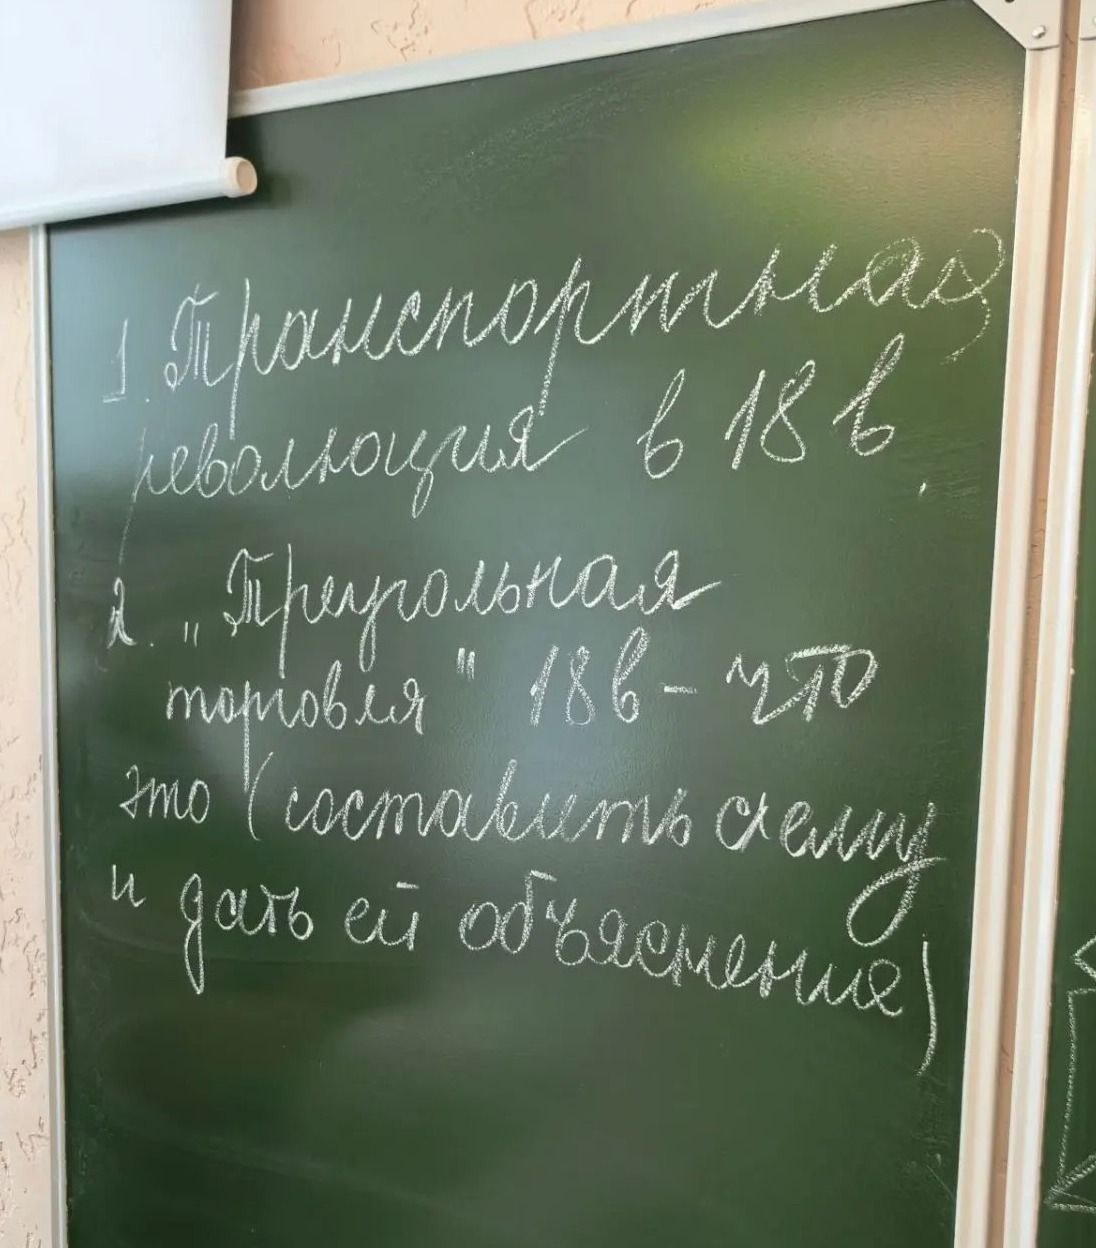 1. Транспортная
революция в 18 в.
2. „Треугольная
торговля" 18в - что
это (составить схему
и дать ей объяснение)